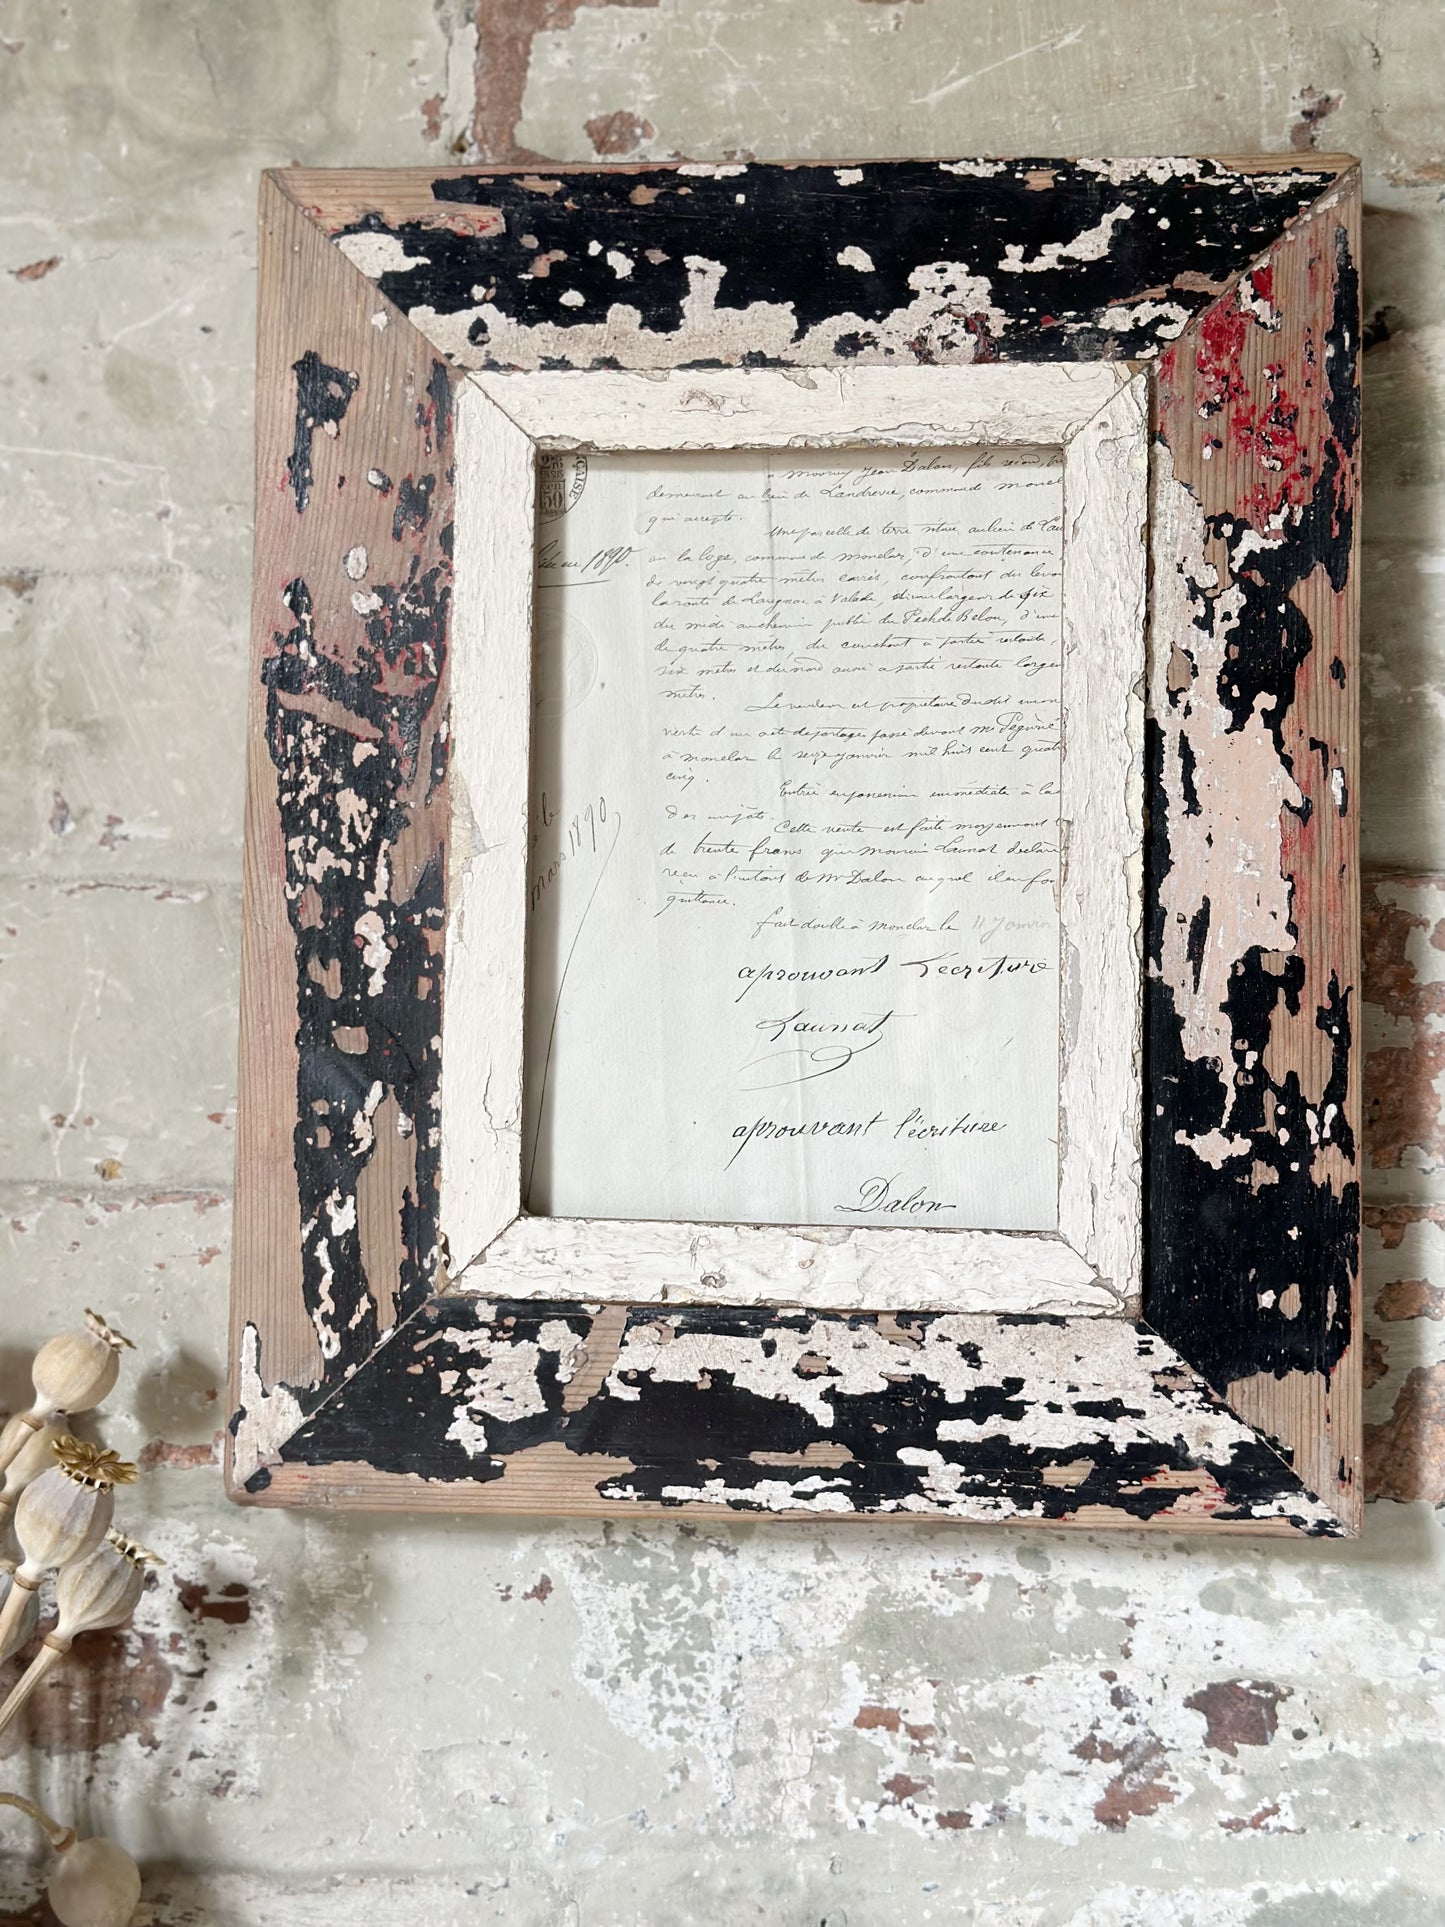 2/10
50
ÇAISE
Jean Dalon, fils
demeurant au lieu de Landrevie, commune de Moncl
qui accepte.
Une parcelle de terre située au lieu de
ou la loge, commune de Monclar, d'une contenance
de vingt quatre mètres carrés, confrontant du leva
la route de à largeur de six
du midi au chemin public du Pech de Belou, d'une
de quatre mètres, du couchant a partie restante,
six mètres et du nord aussi a partie restante largeu
mètres.
Le vendeur est propriétaire
vertu d'un acte de partage passé devant Me
à Monclar le seize janvier mil huit cent quatr
cinq.
Entrée en possession immédiate à la
des impôts.
Cette vente est faite moyennant
de trente francs que Launat déclare
reçu à l'instant de Mr Dalon auquel il en fa
quittance.
fait double à Monclar le 11 Janvi
aprouvant Lecriture
Launat
aprouvant l'écriture
Dalon
1890.
le
mars 1890